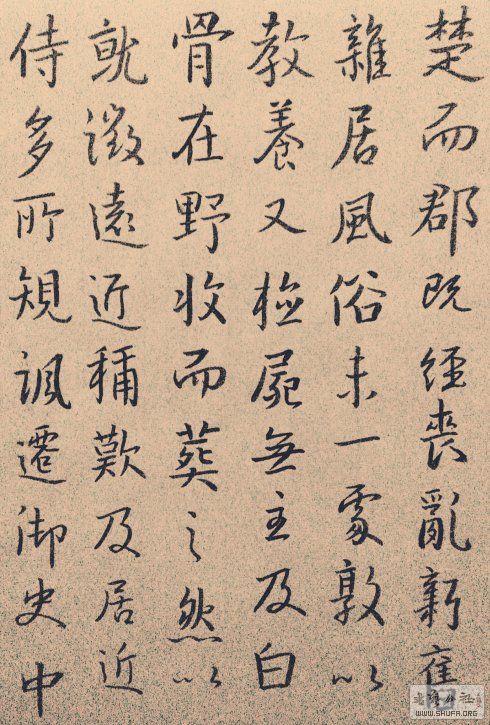 楚而郡既經喪亂新舊
雜居風俗未一處敦以
教養又檢屍無主及白
骨在野收而葬之然以
就徵遠近稱歎及居近
侍多所規諷遷御史中
WWW.SHUFA.ORG